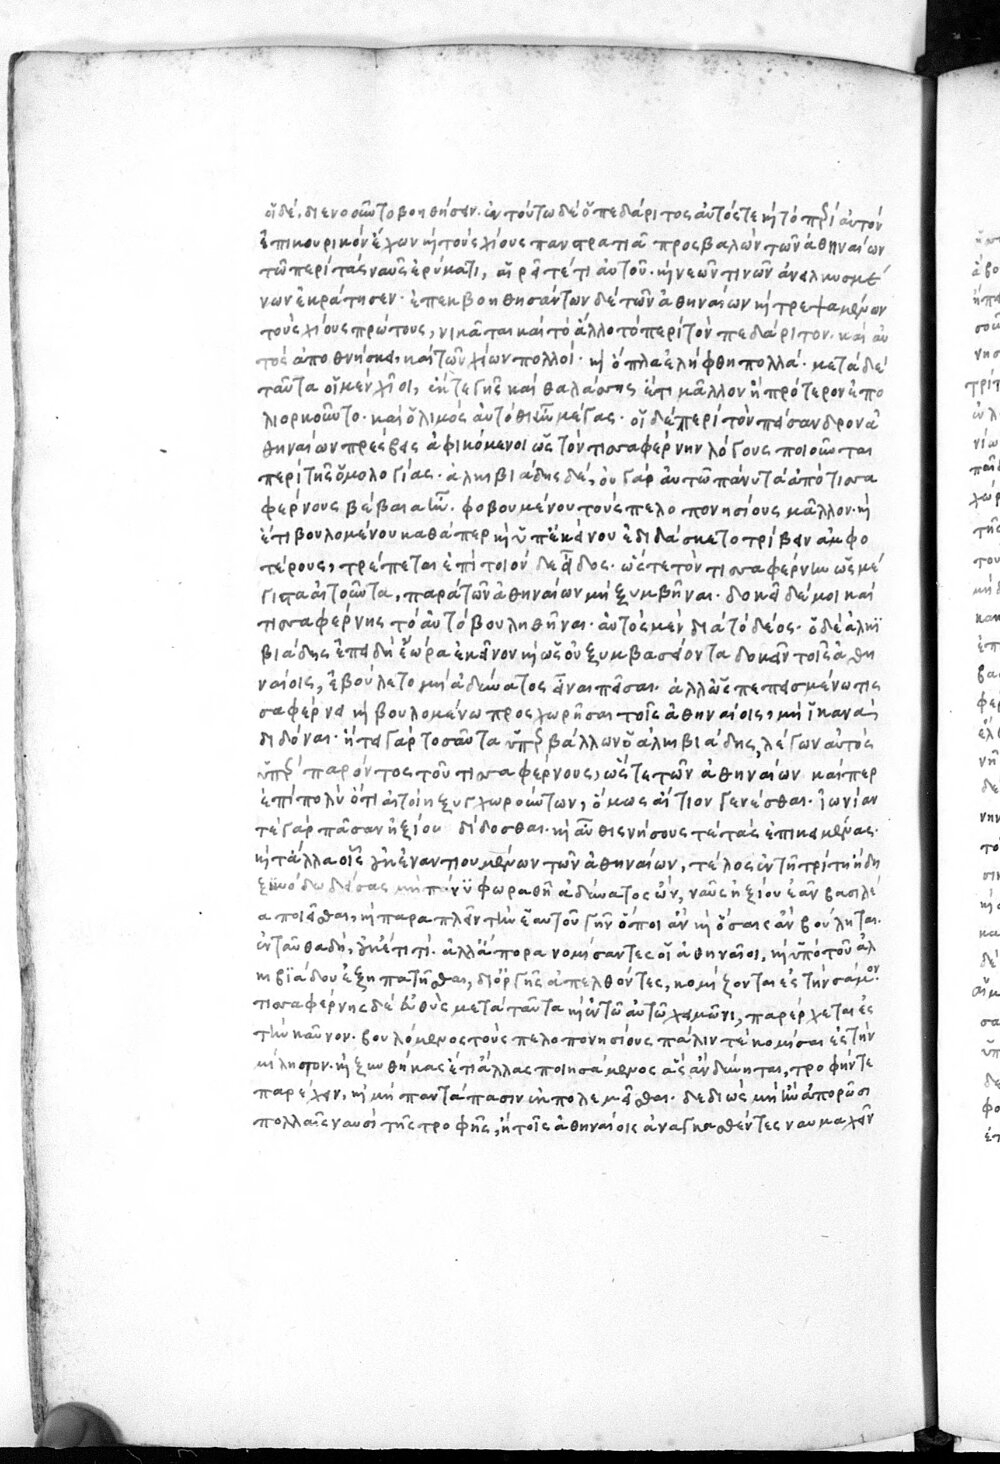 οἱ δὲ. διενοοῦντο βοηθήσειν. ἐν τούτω δὲ ὁ πεδάριτος αὐτός τε καὶ τὸ περὶ αὐτὸν
ἐπικουρικὸν ἔχων καὶ τοὺς χίους πανστρατιᾶ προσβαλὼν τῶν ἀθηναίων
τῶ περὶ τὰς ναῦς ἐρύματι, αἱρεῖ τέ τι αὐτοῦ· καὶ νεῶν τινῶν ἀνειλκυσμέ
νων ἐκράτησεν· ἐπεκβοηθησάντων δὲ τῶν ἀθηναίων καὶ τρεψαμένων
τοὺς χίους πρώτους, νικᾶται καὶ τὸ ἄλλο τὸ περὶ τὸν πεδάριτον. καὶ αὐ
τὸς ἀποθνήσκει, καὶ τῶν χίων πολλοί· καὶ ὅπλα ἐλήφθη πολλά· μετὰ δὲ
ταῦτα οἱ μὲν χῖοι, ἔκ τε γῆς καὶ θαλάσσης ἔτι μᾶλλον ἢ πρότερον ἐπο
λιορκοῦντο· καὶ ὁ λιμὸς αὐτόθι ἦν μέγας· οἱ δὲ περὶ τὸν πείσανδρον ἀ
θηναίων πρέσβεις ἀφικόμενοι ὡς τὸν τισσαφέρνην λόγους ποιοῦνται
περὶ τῆς ὁμολογίας· ἀλκιβιάδης δέ, οὐ γὰρ αὐτῶ πάνυ τὰ ἀπὸ τισσα
φέρνους βέβαια ἦν. φοβουμένου τοὺς πελοπονησίους μᾶλλον· καὶ
ἔτι βουλομένου καθάπερ καὶ ὑπ' ἐκείνου ἐδιδάσκετο τρίβειν ἀμφο
τέρους, τρέπεται ἐπὶ τοιόνδε εἶδος· ὥστε τὸν τισσαφέρνην ὡς μέ
γιστα αἰτοῦντα, παρὰ τῶν ἀθηναίων μὴ ξυμβῆναι. δοκεῖ δέ μοι καὶ
τισσαφέρνης τὸ αὐτὸ βουληθῆναι· αὐτὸς μὲν διὰ τὸ δέος· ὁ δὲ ἀλκι
βιάδης ἐπειδὴ ἑώρα ἐκεῖνον καὶ ὣς οὐ ξυμβασείοντα δοκεῖν τοῖς ἀθη
ναίοις, ἐβούλετο μὴ ἀδύνατος εἶναι πεῖσαι· ἀλλ' ὡς πεπεισμένω τισ
σαφέρνει καὶ βουλομένω προσχωρῆσαι τοῖς ἀθηναίοις, μὴ ἱκανὰ
διδόναι· ἤτει γὰρ τοσαῦτα ὑπερβάλλων ὁ ἀλκιβιάδης, λέγων αὐτὸς
ὑπὲρ παρόντος τοῦ τισσαφέρνους, ὥστε τῶν ἀθηναίων καίπερ
ἐπὶ πολὺ ὅτι αἰτοίη ξυγχωρούντων, ὅμως αἴτιον γενέσθαι· ἰωνίαν
τε γὰρ πᾶσαν ἠξίου δίδοσθαι· καὶ αὖθις νήσους τε τὰς ἐπικειμένας·
καὶ τἄλλα οἷς οὐκ ἐναντιουμένων τῶν ἀθηναίων, τέλος ἐν τῆ τρίτη ἤδη
ξυνόδω δείσας μὴ πάνυ φωραθῆ ἀδύνατος ὤν, ναῦς ἠξίου ἐᾶν βασιλέ
α ποιεῖσθαι, καὶ παραπλεῖν τὴν ἑαυτοῦ γῆν ὅποι ἂν καὶ ὅσαις ἂν βούληται.
ἐνταῦθα δή, οὐκέτι τι· ἀλλ' ἄπορα νομίσαντες οἱ ἀθηναῖοι, καὶ ὑπὸ τοῦ ἀλ
κιβιάδου ἐξηπατῆσθαι, δι' ὀργῆς ἀπελθόντες, κομίζονται ἐς τὴν σάμον·
τισσαφέρνης δὲ εὐθὺς μετὰ ταῦτα καὶ ἐν τῶ αὐτῶ χειμῶνι, παρέρχεται ἐς
τὴν καῦνον. βουλόμενος τοὺς πελοπονησίους πάλιν τε κομίσαι ἐς τὴν
μίλητον· καὶ ξυνθήκας ἔτι ἄλλας ποιησάμενος ἃς ἂν δύνηται, τροφήν τε
παρέχειν, καὶ μὴ παντάπασιν ἐκπολεμεῖσθαι. δεδιὼς μὴ ἢν ἀπορῶσι
πολλαῖς ναυσὶ τῆς τροφῆς, ἢ τοῖς ἀθηναίοις ἀναγκασθέντες ναυμαχεῖν